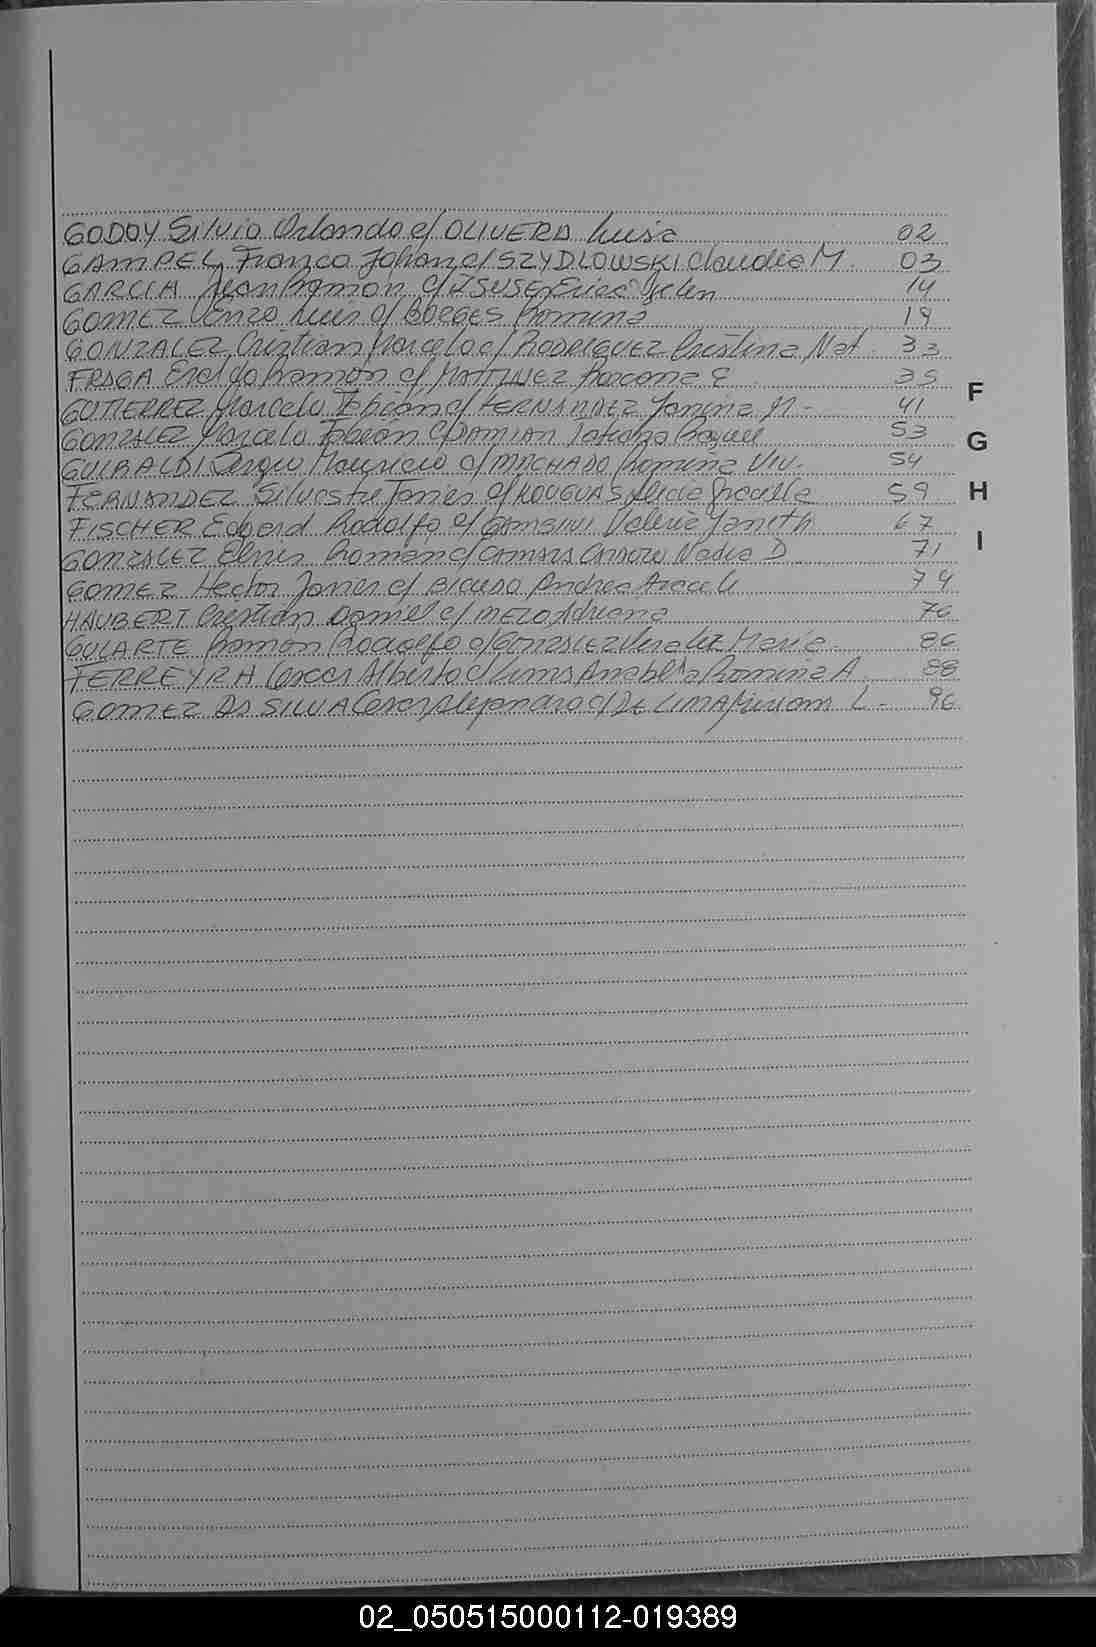 GODOY Silvio Orlando c/ OLIVERA Luisa 02
GAMPEL, Franco Johan c/ SZYDLOWSKI Claudia M. 03
GARCIA Juan Ramon c/ Belen 14
GOMEZ Enzo Luis c/ BORGES Romina 19
GONZALEZ, Cristian Marcelo c/ RODRIGUEZ Cristina Nat. 33
FRAGA Ramon c/ MARTINEZ E 35
GUTIERREZ Marcelo Fabián c/ FERNANDEZ Janina M - 41
GONZALEZ Marcelo Fabián c/ DAMIAN Tatiana Raquel 53
GUIBALDI Sergio Mauricio c/ MACHADO Romina Viv. 54
FERNANDEZ Silvestre Javier c/ Alicia Graciela 59
FISCHER Edgard Rodolfo c/ Valeria Janeth 67
GONZALEZ Roman c/ Nadia D 71
GOMEZ Hector Javier c/ Andrea Araceli 74
HAUBERT Cristian Daniel c/ MELO Adriana 76
GULARTE Ramon Rodolfo c/ GONZALEZ Maria - 86
FERREYRA Oscar Alberto c/ Romina A. 88
GOMEZ DA SILVA Cesar Alejandro c/ DE LIMA Miriam L - 96
F
G
H
I
02_050515000112-019389